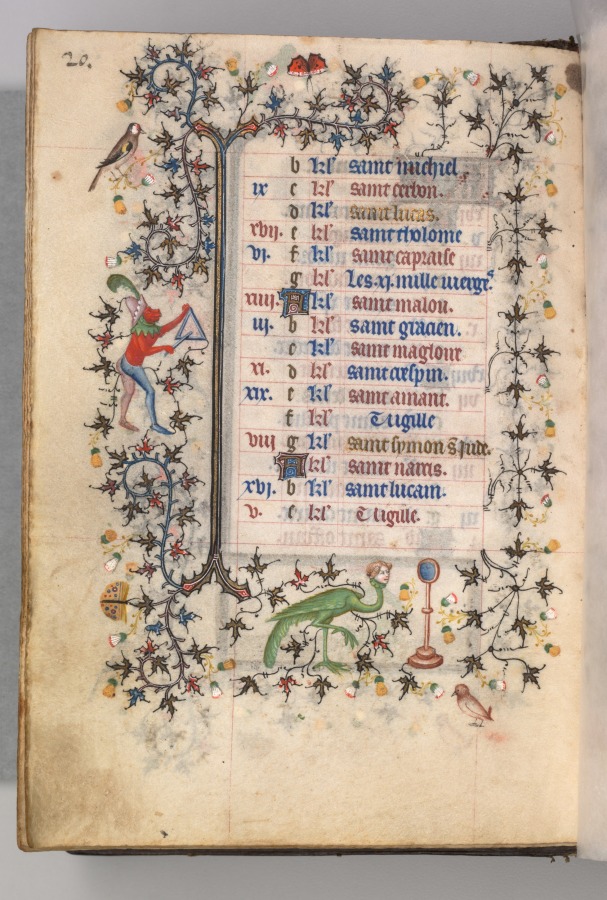 20.
b kl' saint michiel.
ix c kl' saint cerbon.
d kl' saint lucas.
xvij. e kl' saint tholome
vj. f kl' saint capraise
g kl' Les .xj. mille vierges
xiiij. A kl' saint malon.
iij. b kl' saint gracien.
c kl' saint magloire
xj. d kl' saint crespin.
xix. e kl' saint amant.
f kl' Vigille
viij g kl' saint symon & jude.
A kl' saint narcis.
xvj. b kl' saint lucain.
v. c kl' Vigille.